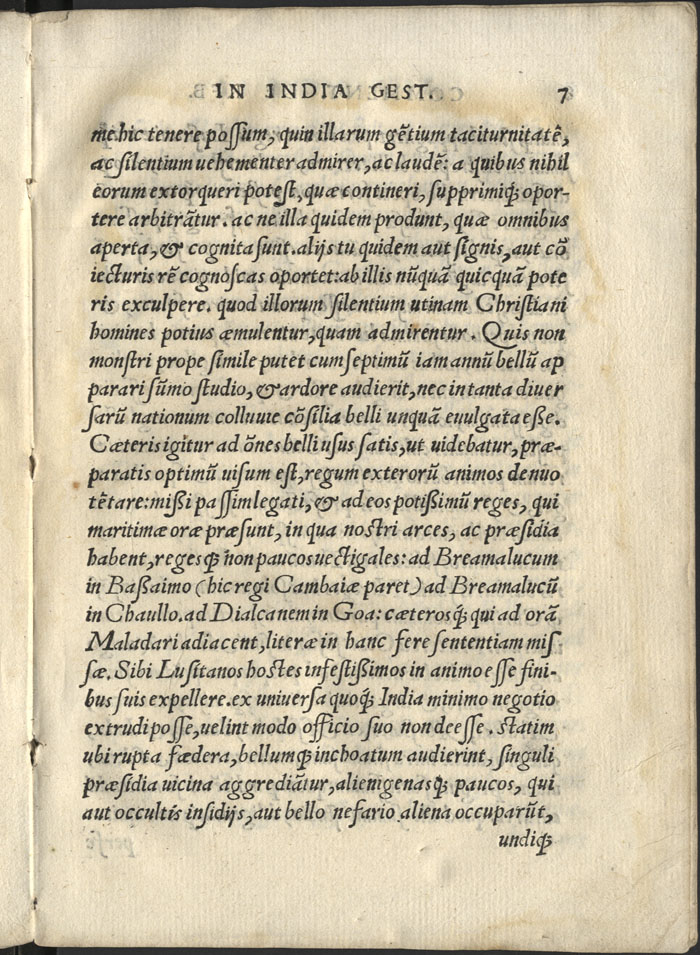 IN INDIA GEST. 7
me hic tenere possum, quin illarum gẽtium taciturnitatẽ,
ac silentium uehementer admirer, ac laudẽ: a quibus nihil
eorum extorqueri potest, quæ contineri, supprimiq́; opor-
tere arbitrãtur. ac ne illa quidem produnt, quæ omnibus
aperta, & cognita sunt. alijs tu quidem aut signis, aut cõ
iecturis rẽ cognoscas oportet: ab illis nũquã quicquã pote
ris exculpere. quod illorum silentium utinam Christiani
homines potius æmulentur, quam admirentur. Quis non
monstri prope simile putet cum septimũ iam annũ bellũ ap
parari sũmo studio, & ardore audierit, nec in tanta diuer
sarũ nationum colluuie cõsilia belli unquã euulgata esse.
Cæteris igitur ad õnes belli usus satis, ut uidebatur, præ-
paratis optimũ uisum est, regum exterorũ animos denuo
tẽtare: missi passim legati, & ad eos potissimũ reges, qui
maritimæ oræ præsunt, in qua nostri arces, ac præsidia
habent, regesq́; non paucos uectigales: ad Breamalucum
in Bassaimo (hic regi Cambaiæ paret) ad Breamalucũ
in Chaullo. ad Dialcanem in Goa: cæterosq́; qui ad orã
Maladari adiacent, literæ in hanc fere sententiam mis
sæ. Sibi Lusitanos hostes infestissimos in animo esse fini-
bus suis expellere. ex uniuersa quoq́; India minimo negotio
extrudi posse, uelint modo officio suo non deesse. statim
ubi rupta fædera, bellumq́; inchoatum audierint, singuli
præsidia uicina aggrediãtur, alienigenasq́; paucos, qui
aut occultis insidijs, aut bello nefario aliena occuparũt,
undiq́;